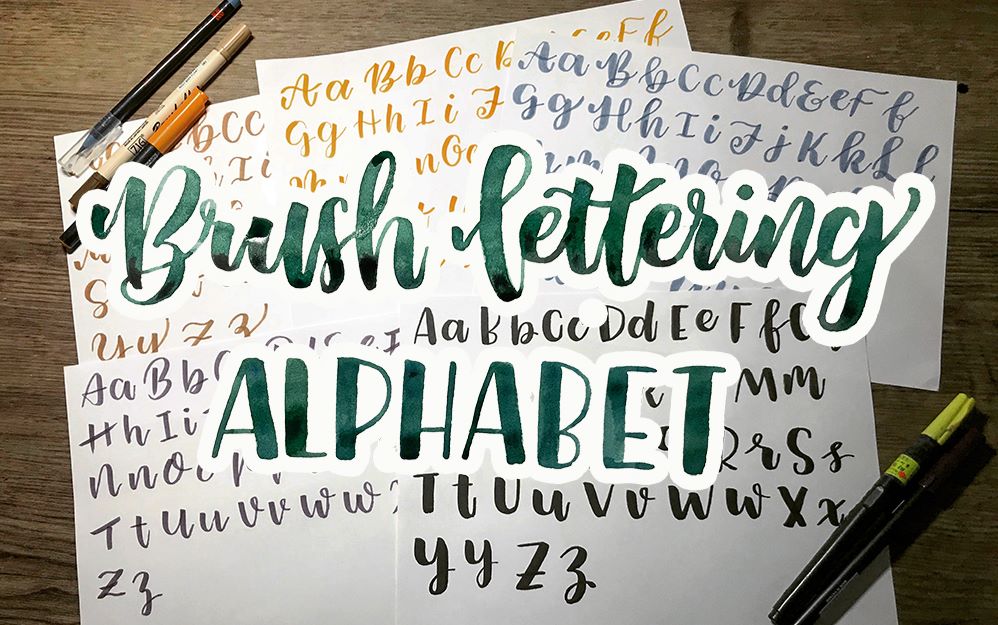 Aa Bb Cc
Gg Hh Ii J
Aa Bb Cc Dd Ee Ff
Gg Hh Ii Jj Kk Ll
Cc
Ii
Brush lettering
ALPHABET
S
Yy Zz
Aa Bb
Hh Ii
Nn O
Tt Uu Vv Ww
Zz
Aa Bb Cc Dd Ee Ff G
Mm
Rr Ss
Tt Uu Vv Ww Xx
Yy Zz